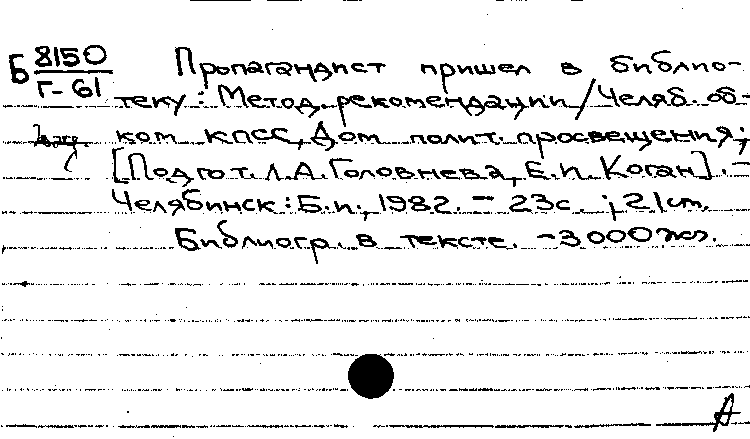 Б 8150
Г-61
Пропагандист пришел в библио-
теку: Метод. рекомендации/Челяб. об-
ком КПСС, Дом полит. просвещения;
[Подгот. Л.А. Головнева, Е.П. Коган]. –
Челябинск: Б.и., 1982. – 23с. ; 21см.
Библиогр. в тексте. – 3000 экз.
А